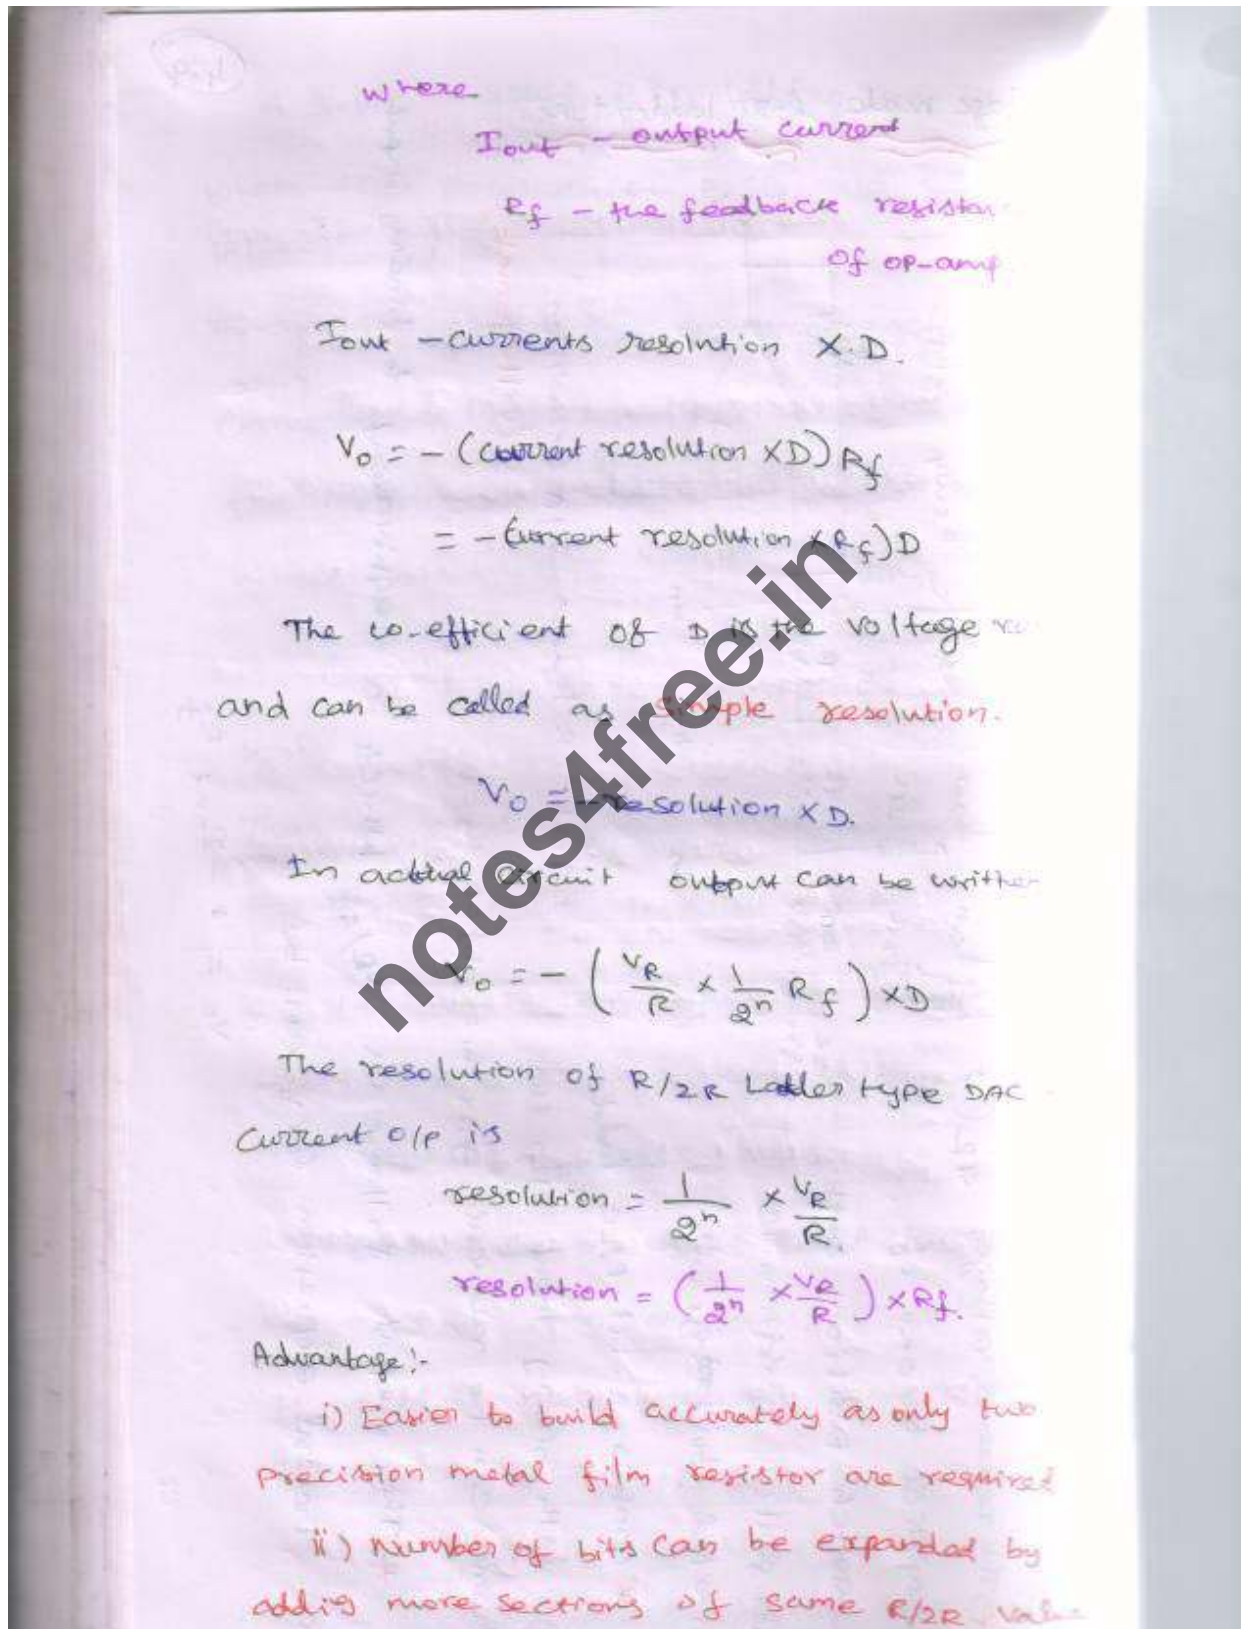 where
Iout - output current
Rf - the feedback resistor
of op-amp
Iout - currents resolution X.D.
V₀ = - (current resolution XD) Rf
= - (current resolution X Rf) D
The co-efficient of D is the voltage
and can be called as simple resolution.
V₀ = - resolution X D.
In actual circuit output can be written
V₀ = - ( VR/R x 1/2ⁿ Rf ) x D
The resolution of R/2R Ladder type DAC
Current o/p is
resolution = 1/2ⁿ x VR/R.
resolution = ( 1/2ⁿ x VR/R ) x Rf.
Advantage:-
i) Easier to build accurately as only two
precision metal film resistor are required
ii) number of bits can be expanded by
addig more sections of same R/2R value
notes4free.in